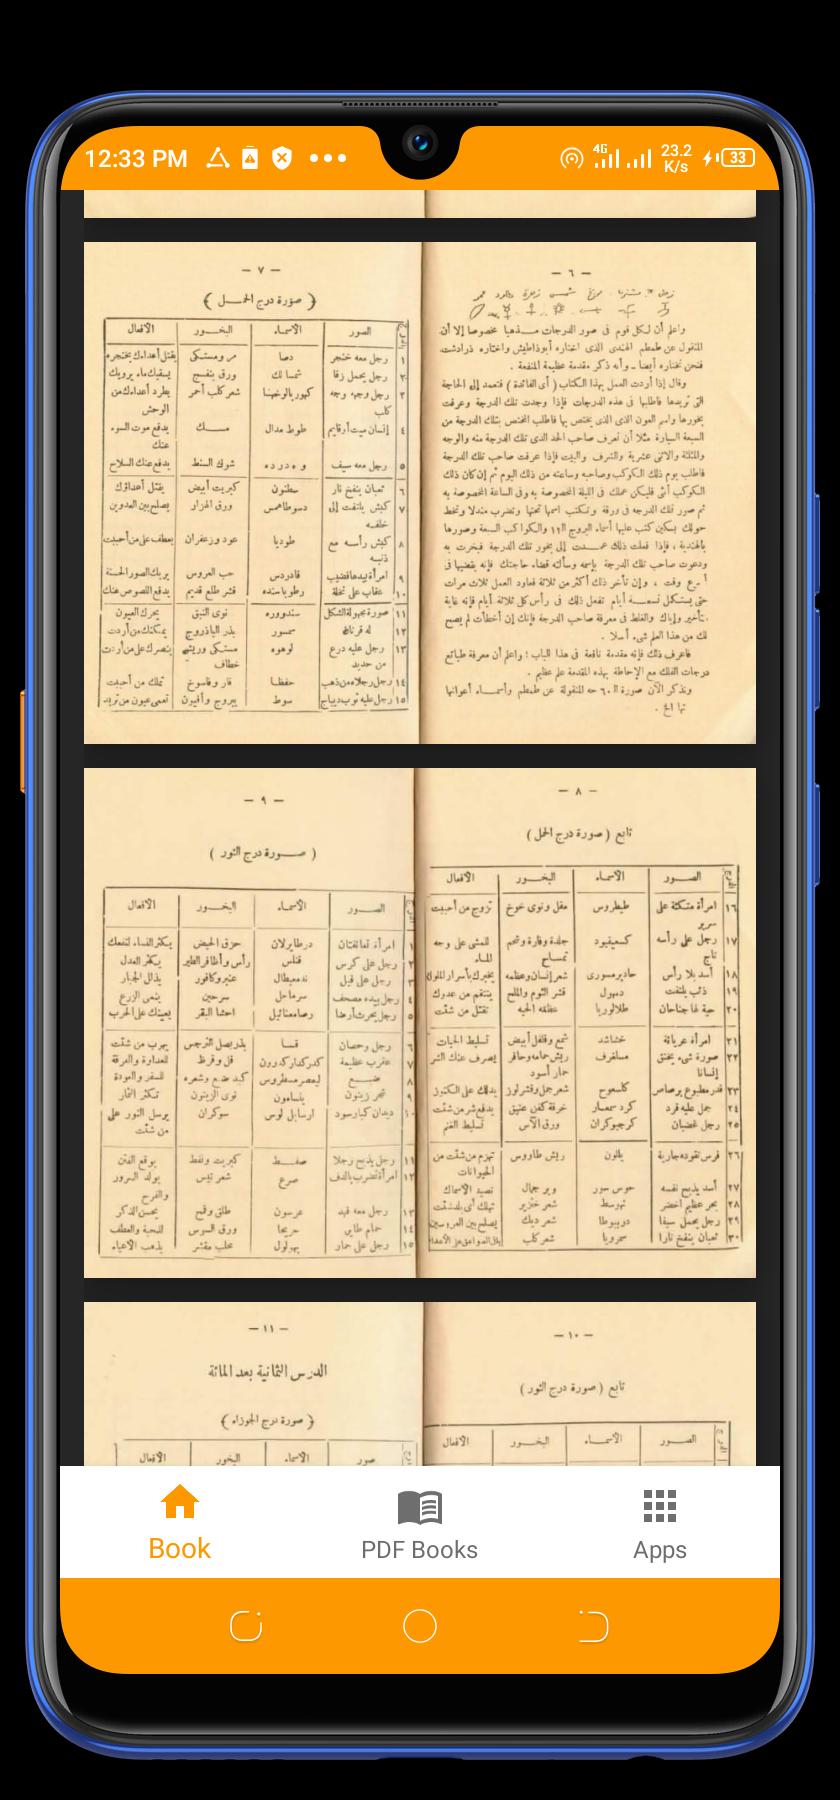 12:33 PM
4G
23.2
K/s
33
— ٧ —
﴿ صورة درج الحمل ﴾
الصور الاسماء البخور الافعال
١ رجل معه خنجر دصا مر ومستكى يقتل أعداءك بخنجره
٢ رجل يحمل زقا شمسا لك ورق بنفسج يسقيك ماء يرويك
٣ رجل وجهه وجه شعر كلب أحمر يطرد أعداءك من
كلب الوحش
٤ إنسان ميت أرقايم طوط مدال مسك يدفع موت السوء
عنك
٥ رجل معه سيف وه درده شوك السنط يدفع عنك السلاح
٦ ثعبان ينفخ نار سطنون كبريت أبيض يقتل أعداؤك
٧ كبش يلتفت إلى دسوطاهمس ورق الهزار يصلح بين العدوين
خلفه
٨ كبش رأسه مع طوديا عود وزعفران يعطف على من أحببت
ذنبه
٩ امرأة بيدها قضيب قادردس حب العروس يريك الصور الحسنة
١٠ عقاب على نخلة رطوباسنده قشر طلع قديم يدفع اللصوص عنك
١١ صورة مجهولة الشكل سندووره نوى النبق يحرك العيون
١٢ له قرناط سمسور بذر الباذروج يمكنك من أردت
١٣ رجل عليه درع لوهوه مستكى وريشه ينصرك على من أردت
من حديد خطاف
١٤ رجل رجلاه من ذهب حفظا قار وفاسوخ تملك من أحببت
١٥ رجل عليه ثوب ديباج سوط يبروج وأفيون تعمى عيون من تريد
— ٦ —
زحل مشترى مريخ شمس زهرة عطارد قمر
واعلم أن لكل قوم فى صور الدرجات مذهبا مخصوصا إلا أن
المنقول عن طمطم الهندى الذى اختاره أبوذاطيش واختاره ذرادشت
فنحن نختاره أيضا ـ وأنه ذكر مقدمة عظيمة المنفعة .
وقال إذا أردت العمل بهذا الكتاب ( أى الفائدة ) فتعمد إلى الحاجة
التى تريدها فاطلبها فى هذه الدرجات فإذا وجدت تلك الدرجة وعرفت
بخورها واسم العون الذى الذى يختص بها فاطلب المختص بتلك الدرجة من
السبعة السيارة مثلا أن تعرف صاحب الحد الذى تلك الدرجة منه والوجه
والمثلثة والاثنى عشرية والشرف والبيت فإذا عرفت صاحب تلك الدرجة
فاطلب يوم ذلك الكوكب وصاحبه وساعته من ذلك اليوم ثم إن كان ذلك
الكوكب أنثى فليكن عملك فى الليلة المخصوصة به وفى الساعة المخصوصة به
ثم صور تلك الدرجه فى ورقة وتكتب اسمها تحتها وتضرب مندلا وتخط
حولك بسكين كتب عليها أسماء البروج الـ١٢ والكواكب السبعة وصورها
بالهندية ، فإذا فعلت ذلك عمدت إلى بخور تلك الدرجة فبخرت به
ودعوت صاحب تلك الدرجة بإسمه وسألته قضاء حاجتك فإنه يقضيها فى
أسرع وقت ، وإن تأخر ذلك أكثر من ثلاثة فعاود العمل ثلاث مرات
حتى يستكمل تسعة أيام تفعل ذلك فى رأس كل ثلاثة أيام فإنه غاية
تأخير وإياك والغلط فى معرفة صاحب الدرجة فإنك إن أخطأت لم يصح
لك من هذا العلم شىء أصلا .
فاعرف ذلك فإنه مقدمة نافعة فى هذا الباب ؛ واعلم أن معرفة طبائع
درجات الفلك مع الإحاطة بهذه المقدمة علم عظيم .
ونذكر الآن صورة الـ ٣٦٠ المنقولة عن طمطم وأسماء أعوانها
الخ .
— ٩ —
( صورة درج الثور )
الصور الاسماء البخور الافعال
١ امرأة تعانقتان درطايرلان حزق الحيض يكثر النساء لنفعك
٢ رجل على كرس قناس رأس وأظافر الطير يكثر العدل
٣ رجل على قبل ندمعيطال عنبر وكافور يذلل الجبار
٤ رجل بيده مصحف سرماحل سرحين ينمى الزرع
٥ رجل يحرث أرضا رصامعنائيل احشا البقر يعينك على الحرب
٦ رجل وحصان قسا بذر بصل النرجس يهرب من شئت
٧ عقرب عظيمة كدركداركدرون قل وقرظ للعداوة والفرقة
٨ ضبع ليعصرمسطروس كبد ضبع وشعره للسفر والمودة
٩ شجر زيتون ينسامون نوى الزيتون تكثر الثمار
١٠ ديدان كبارسود ارسابل لوس سوكران يرسل الثور على
من شئت
١١ رجل يذبح رجلا صفط كبريت ونفط يوقع الفتن
١٢ امرأة تضرب بالدف صرع شعر تيس يولد السرور
والفرح
١٣ رجل معه قيد عرسون طلق وقمح يحسن الذكر
١٤ حمام طاير حريحا ورق السوس للمحبة والعطف
١٥ رجل على حمار بهلول محلب مقشر يذهب الاعياء
— ٨ —
تابع ( صورة درج الحمل )
الصور الاسماء البخور الافعال
١٦ امرأة متكئة على طيطروس مقل ونوى خوخ تزوج من أحببت
سرير
١٧ رجل على رأسه كسعيفيود جلدة وقارة وشحم للمشى على وجه
تاج تمساح الماء
١٨ أسد بلا رأس حاديرمسورى شعر إنسان وعظمه يخبرك بأسرار الملوك
١٩ ذئب يلتفت دميول قشر الثوم والملح ينتقم من عدوك
٢٠ حية لها جناحان طلالوريا عظمه الحيه تقتل من شئت
٢١ امرأة عريانة خشاشد شمع وفلفل أبيض تسليط الحيات
٢٢ صورة شىء يخنق مسلفرف ريش حمامه وحافر يصرف عنك الشر
إنسانا حمار أسود
٢٣ قدر مطبوع برصاص كلسعوح شعر جمل وقشر لوز يدلك على الكنوز
٢٤ جمل عليه قرد كرد سمعار خرقة كفن عتيق يدفع شر من شئت
٢٥ رجل غضبان كرجيوكران ورق الآس تسليط الغنم
٢٦ فرس تقوده جارية يللون ريش طاووس تهزم من شئت من
الحيوانات
٢٧ أسد يذبح نفسه حوس سور وبر جمال تصيد الاسماك
٢٨ بحر عظيم اخضر نهوسط شعر خنزير
٢٩ رجل يحمل سيفا دريبوطا شعر ديك يصلح بين العروسين
٣٠ ثعبان ينفخ نارا سمرويا شعر كلب
— ١١ —
الدرس الثمانية بعد المائة
﴿ صورة درج الجوزاء ﴾
صور الاسماء البخور الافعال
— ١٠ —
تابع ( صورة درج الثور )
الصور الاسماء البخور الافعال
Book
PDF Books
Apps